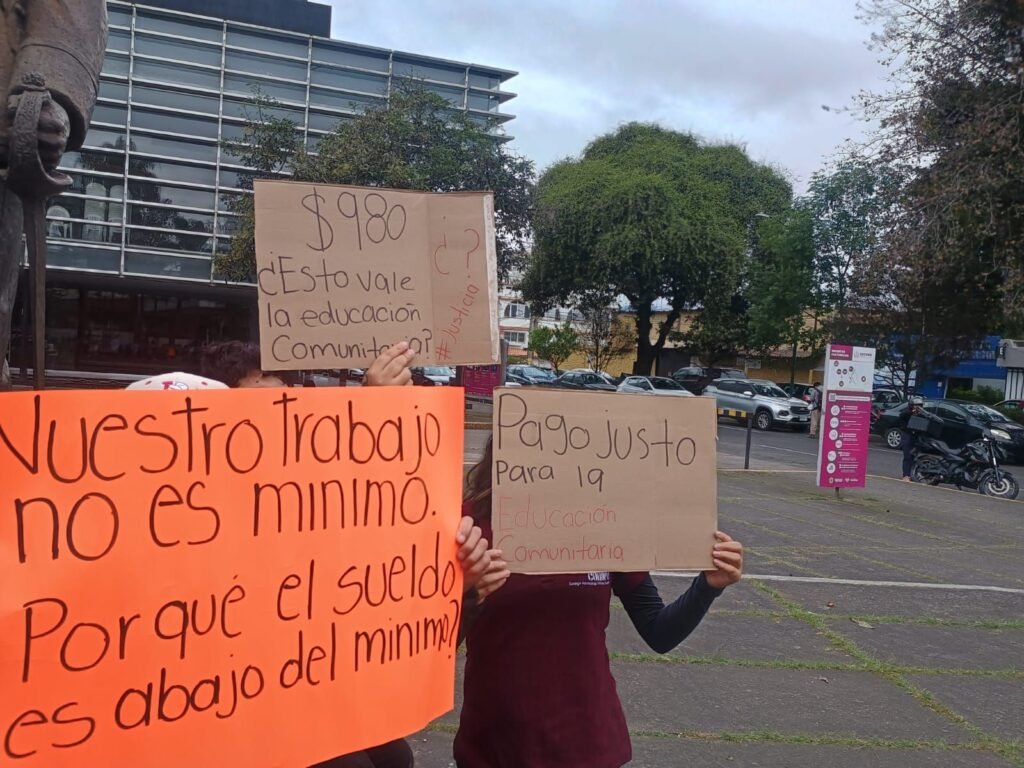 $980
¿Esto vale
la educación
Comunitaria?
#Justicia
¿?
Nuestro trabajo
no es minimo.
Porqué el sueldo
es abajo del minimo?
Pago Justo
Para la
Educación
Comunitaria